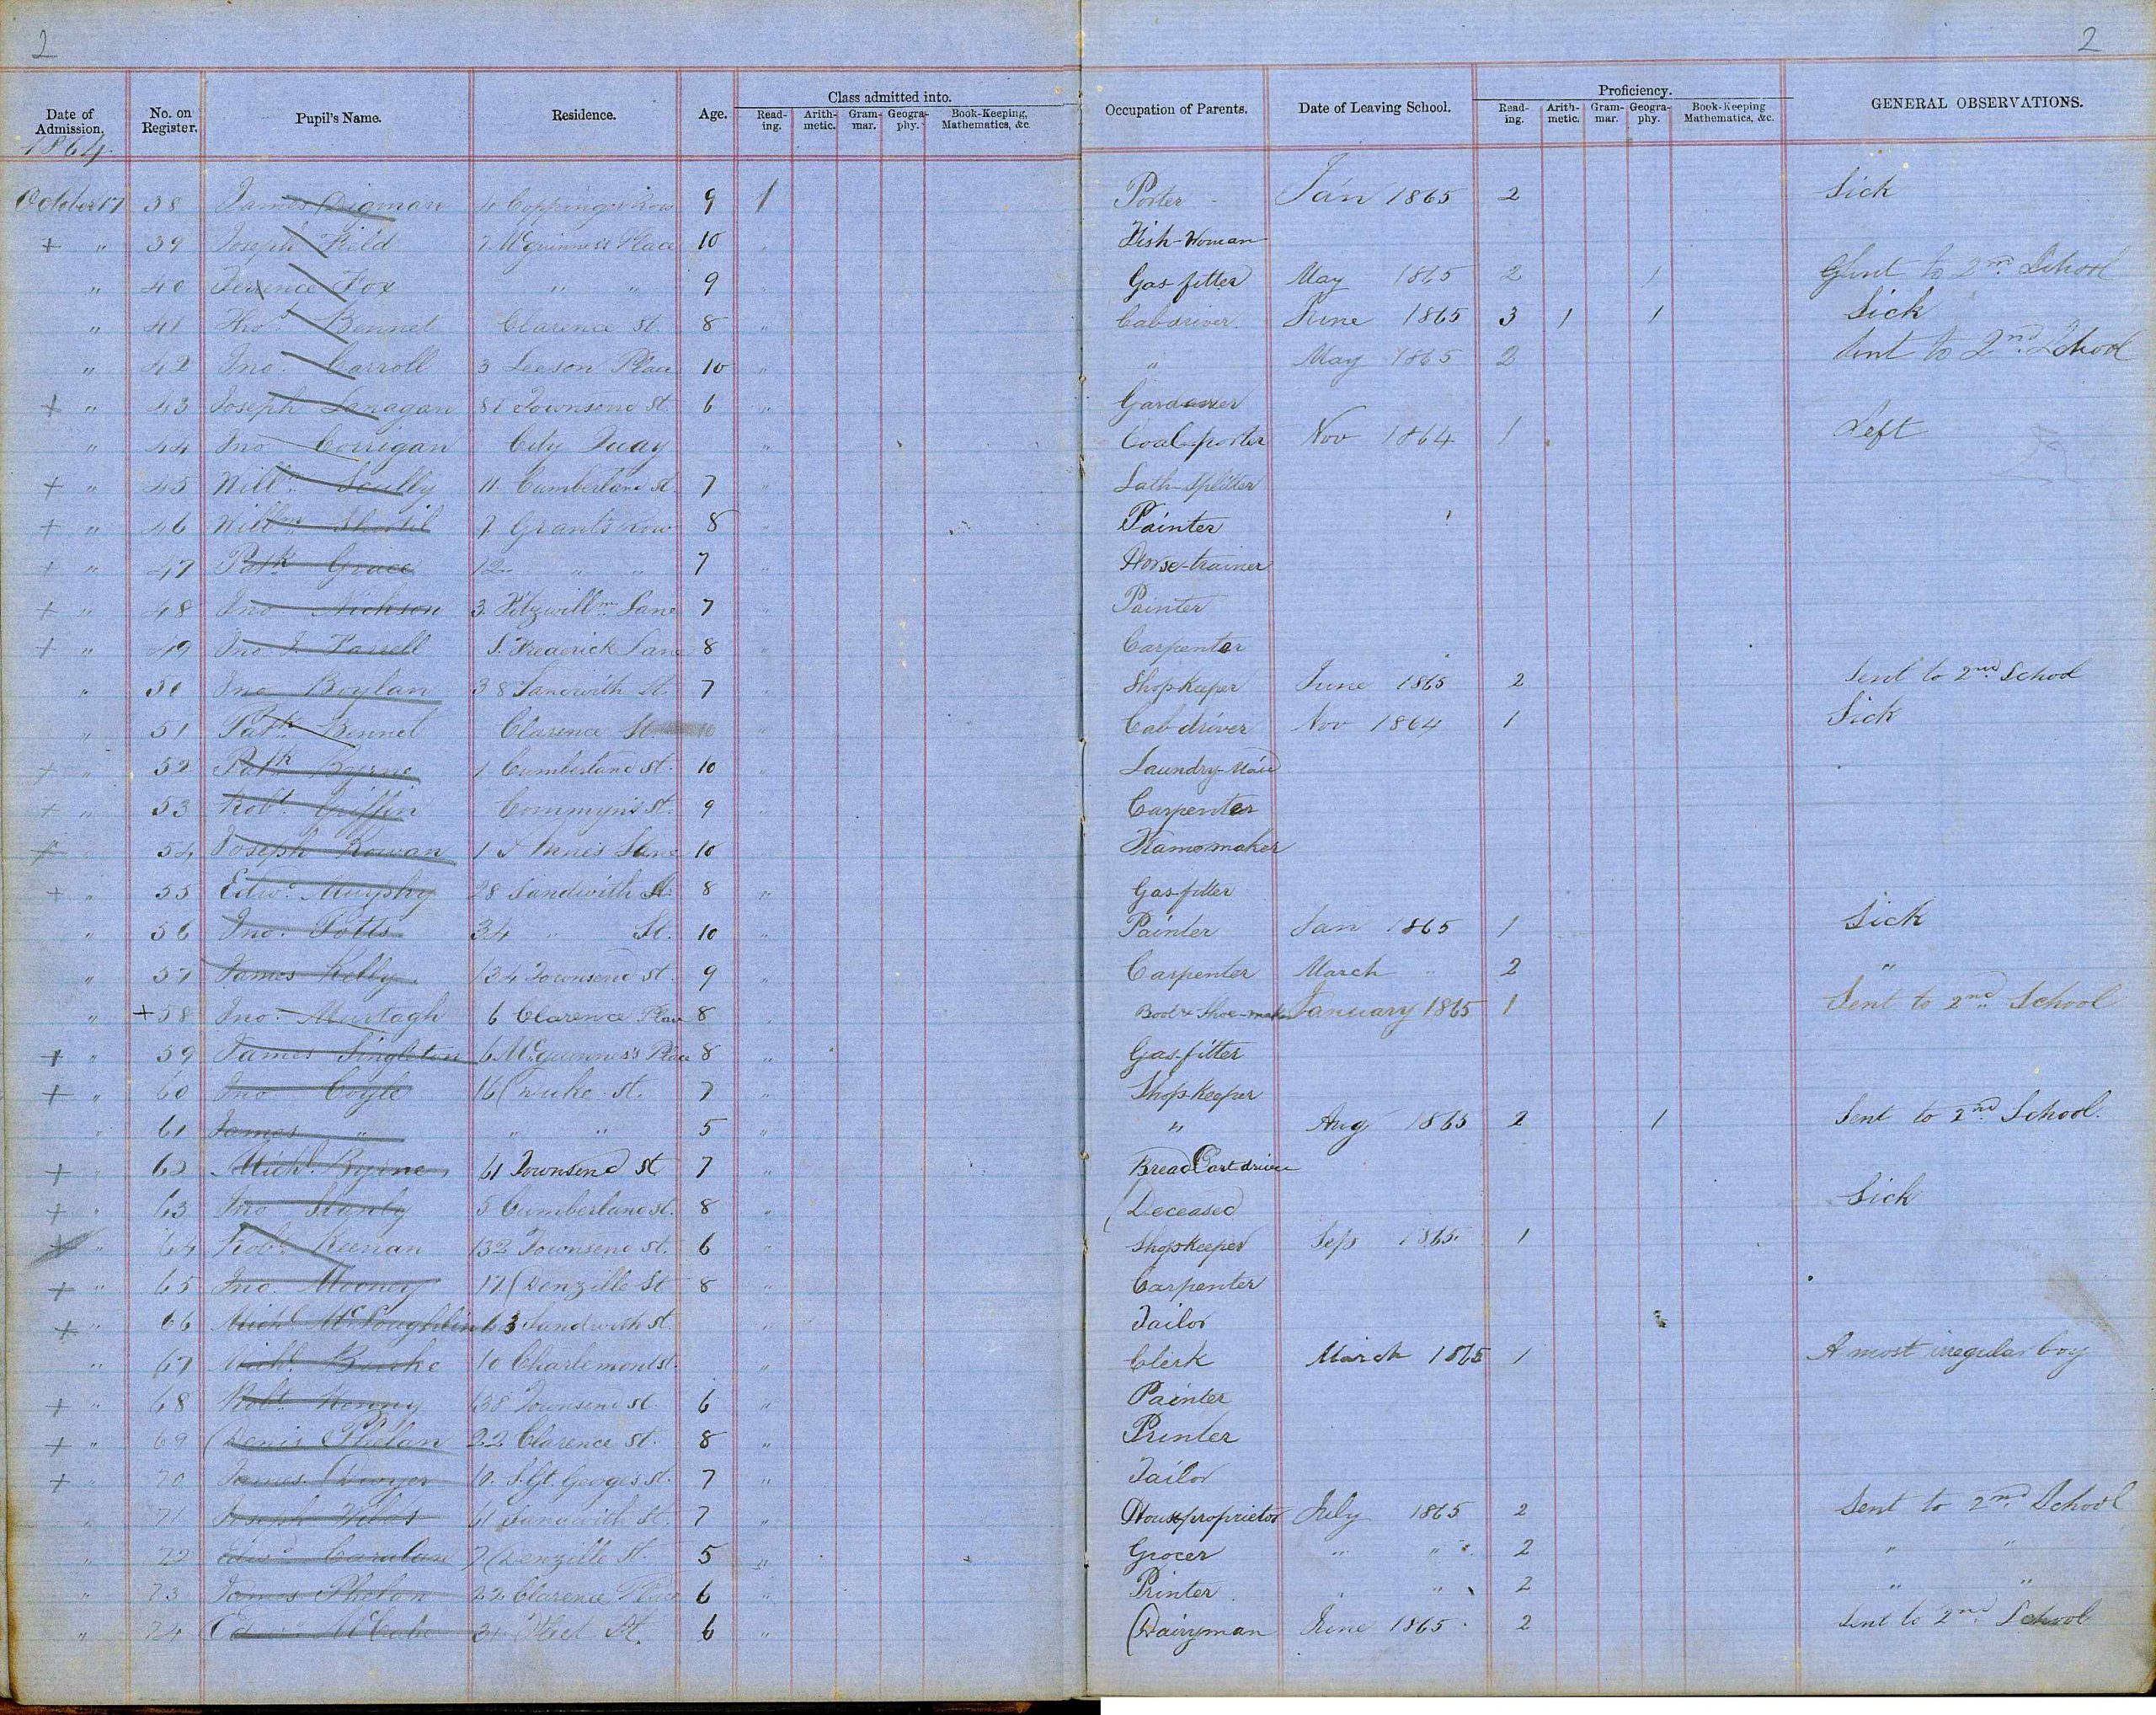 2
2
Date of Admission. No. on Register. Pupil's Name. Residence. Age. Class admitted into. Reading. Arithmetic. Grammar. Geography. Book-Keeping, Mathematics, &c. Occupation of Parents. Date of Leaving School. Proficiency. Reading. Arithmetic. Grammar. Geography. Book-Keeping Mathematics, &c. GENERAL OBSERVATIONS.
1864
October 17 38 James Digman 4 Coppinger Row 9 1 Porter Jan 1865 2 Sick
+ " 39 Joseph Field 7 McGuinness Place 10 " Fish-Woman
" 40 Terence Fox " " 9 " Gas-fitter May 1865 2 1 Sent to 2nd School
" 41 Thos. Bennet Clarence St. 8 " Cabdriver June 1865 3 1 1 Sick
" 42 Jno. Carroll 3 Leeson Place 10 " " May 1865 2 Sent to 2nd School
+ " 43 Joseph Lanagan 81 Townsend St. 6 " Gardener
" 44 Jno Corrigan City Quay " Coal-porter Nov 1864 1 Left
+ " 45 Willm Scully 11 Cumberland St. 7 " Lath-splitter
+ " 46 Willm 7 Grant's row 8 " Painter
+ " 47 Patk Grace 12 " " 7 " Horse-trainer
+ " 48 Jno Nickson 3 Fitzwillm Lane 7 " Painter
+ " 49 Jno J Farrell 1. Frederick Lane 8 " Carpenter
" 50 Jno Boylan 38 Sandwith St. 7 " Shop-Keeper June 1865 2 Sent to 2nd School
" 51 Patk Bennet Clarence St. 10 " Cab driver Nov 1864 1 Sick
+ " 52 Patk Byrne 1 Cumberland St. 10 " Laundry-Maid
+ " 53 Robt. Griffin Commyns St. 9 " Carpenter
+ " 54 Joseph Rowan 1 St Annes Lane 10 " Framemaker
+ " 55 Edwd. Murphy 28 Sandwith St. 8 " Gas-fitter
" 56 Jno. Potts 34 " St. 10 " Painter Jan 1865 1 Sick
" 57 James Kelly 134 Townsend St. 9 " Carpenter March " 2 "
" +58 Jno. Murtagh 6 Clarence Place 8 " Boot & Shoe-maker January 1865 1 Sent to 2nd School
+ " 59 James Singleton 6 McGuinness's Place 8 " Gas-fitter
+ " 60 Jno Coyle 16 Duke St. 7 " Shop-Keeper
" 61 James " " " 5 " " Aug 1865 2 1 Sent to 2nd School.
+ " 62 Michl. Byrne 61 Townsend St 7 " Bread Cart driver
+ " 63 Jno Stanly 5 Cumberland St. 8 " Deceased Sick
+ " 64 Robt. Keenan 132 Townsend St. 6 " Shopkeeper Sep 1865. 1
+ " 65 Jno. Mooney 17 Denzille St 8 " Carpenter
+ " 66 Michl McLoughlin 63 Sandwith St. Tailor
" 67 Michl. Burke 10 Charlemont St. " Clerk March 1865 1 A most irregular boy
+ " 68 Robt. Kenny 138 Townsend St. 6 " Painter
+ " 69 Denis Phelan 22 Clarence St. 8 " Printer
+ " 70 James Dwyer 10. S. Gt. Georges St. 7 " Tailor
" 71 Joseph 61 Sandwith St. 7 " House proprietor July 1865 2 Sent to 2nd School
" 72 Edwd. Carolan 7 Denzille St. 5 " Grocer " " 2 " "
" 73 James Phelan 22 Clarence Place 6 " Printer " " 2 " "
" 74 Edwd McCabe 31 Fleet St. 6 " Dairyman June 1865. 2 Sent to 2nd School